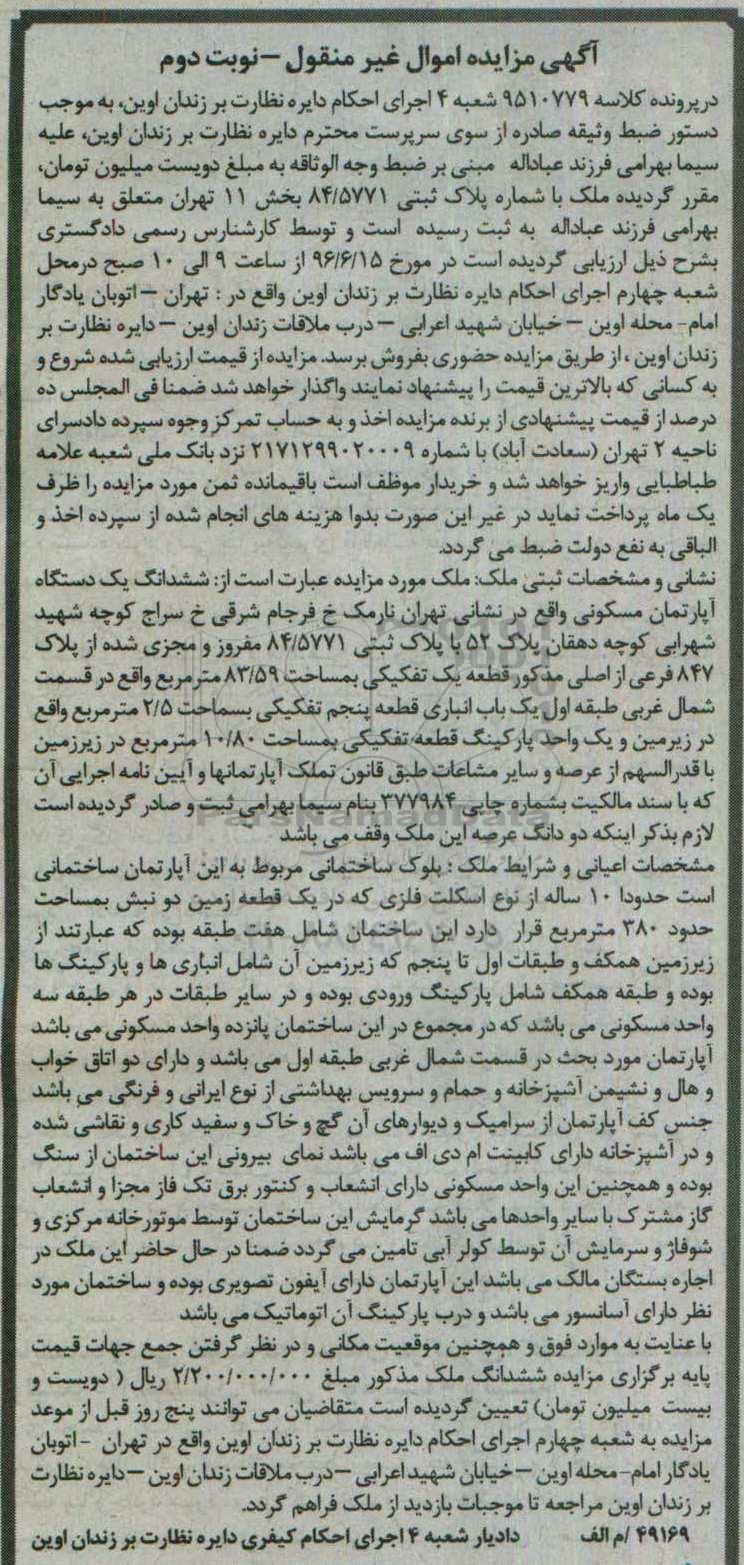 آگهی مزایده اموال غیر منقول – نوبت دوم
درپرونده کلاسه ۹۵۱۰۷۷۹ شعبه ۴ اجرای احکام دایره نظارت بر زندان اوین، به موجب
دستور ضبط وثیقه صادره از سوی سرپرست محترم دایره نظارت بر زندان اوین، علیه
سیما بهرامی فرزند عباداله مبنی بر ضبط وجه الوثاقه به مبلغ دویست میلیون تومان،
مقرر گردیده ملک با شماره پلاک ثبتی ۸۴/۵۷۷۱ بخش ۱۱ تهران متعلق به سیما
بهرامی فرزند عباداله به ثبت رسیده است و توسط کارشنارس رسمی دادگستری
بشرح ذیل ارزیابی گردیده است در مورخ ۹۶/۶/۱۵ از ساعت ۹ الی ۱۰ صبح درمحل
شعبه چهارم اجرای احکام دایره نظارت بر زندان اوین واقع در : تهران – اتوبان یادگار
امام- محله اوین – خیابان شهید اعرابی – درب ملاقات زندان اوین – دایره نظارت بر
زندان اوین ، از طریق مزایده حضوری بفروش برسد. مزایده از قیمت ارزیابی شده شروع و
به کسانی که بالاترین قیمت را پیشنهاد نمایند واگذار خواهد شد ضمنا فی المجلس ده
درصد از قیمت پیشنهادی از برنده مزایده اخذ و به حساب تمرکز وجوه سپرده دادسرای
ناحیه ۲ تهران (سعادت آباد) با شماره ۲۱۷۱۲۹۹۰۲۰۰۰۹ نزد بانک ملی شعبه علامه
طباطبایی واریز خواهد شد و خریدار موظف است باقیمانده ثمن مورد مزایده را ظرف
یک ماه پرداخت نماید در غیر این صورت بدوا هزینه های انجام شده از سپرده اخذ و
الباقی به نفع دولت ضبط می گردد.
نشانی و مشخصات ثبتی ملک: ملک مورد مزایده عبارت است از: ششدانگ یک دستگاه
آپارتمان مسکونی واقع در نشانی تهران نارمک خ فرجام شرقی خ سراج کوچه شهید
شهرابی کوچه دهقان پلاک ۵۲ با پلاک ثبتی ۸۴/۵۷۷۱ مفروز و مجزی شده از پلاک
۸۴۷ فرعی از اصلی مذکور قطعه یک تفکیکی بمساحت ۸۳/۵۹ مترمربع واقع در قسمت
شمال غربی طبقه اول یک باب انباری قطعه پنجم تفکیکی بسماحت ۲/۵ مترمربع واقع
در زیرمین و یک واحد پارکینگ قطعه تفکیکی بمساحت ۱۰/۸۰ مترمربع در زیرزمین
با قدرالسهم از عرصه و سایر مشاعات طبق قانون تملک آپارتمانها و آیین نامه اجرایی آن
که با سند مالکیت بشماره چاپی ۳۷۷۹۸۴ بنام سیما بهرامی ثبت و صادر گردیده است
لازم بذکر اینکه دو دانگ عرصه این ملک وقف می باشد
مشخصات اعیانی و شرایط ملک : بلوک ساختمانی مربوط به این آپارتمان ساختمانی
است حدودا ۱۰ ساله از نوع اسکلت فلزی که در یک قطعه زمین دو نبش بمساحت
حدود ۳۸۰ مترمربع قرار دارد این ساختمان شامل هفت طبقه بوده که عبارتند از
زیرزمین همکف و طبقات اول تا پنجم که زیرزمین آن شامل انباری ها و پارکینگ ها
بوده و طبقه همکف شامل پارکینگ ورودی بوده و در سایر طبقات در هر طبقه سه
واحد مسکونی می باشد که در مجموع در این ساختمان پانزده واحد مسکونی می باشد
آپارتمان مورد بحث در قسمت شمال غربی طبقه اول می باشد و دارای دو اتاق خواب
و هال و نشیمن آشپزخانه و حمام و سرویس بهداشتی از نوع ایرانی و فرنگی می باشد
جنس کف آپارتمان از سرامیک و دیوارهای آن گچ و خاک و سفید کاری و نقاشی شده
و در آشپزخانه دارای کابینت ام دی اف می باشد نمای بیرونی این ساختمان از سنگ
بوده و همچنین این واحد مسکونی دارای انشعاب و کنتور برق تک فاز مجزا و انشعاب
گاز مشترک با سایر واحدها می باشد گرمایش این ساختمان توسط موتورخانه مرکزی و
شوفاژ و سرمایش آن توسط کولر آبی تامین می گردد ضمنا در حال حاضر این ملک در
اجاره بستگان مالک می باشد این آپارتمان دارای آیفون تصویری بوده و ساختمان مورد
نظر دارای آسانسور می باشد و درب پارکینگ آن اتوماتیک می باشد
با عنایت به موارد فوق و همچنین موقعیت مکانی و در نظر گرفتن جمع جهات قیمت
پایه برگزاری مزایده ششدانگ ملک مذکور مبلغ ۲/۲۰۰/۰۰۰/۰۰۰ ریال ( دویست و
بیست میلیون تومان) تعیین گردیده است متقاضیان می توانند پنج روز قبل از موعد
مزایده به شعبه چهارم اجرای احکام دایره نظارت بر زندان اوین واقع در تهران - اتوبان
یادگار امام- محله اوین – خیابان شهید اعرابی – درب ملاقات زندان اوین – دایره نظارت
بر زندان اوین مراجعه تا موجبات بازدید از ملک فراهم گردد.
۴۹۱۶۹ /م الف دادیار شعبه ۴ اجرای احکام کیفری دایره نظارت بر زندان اوین
ParsNamadData